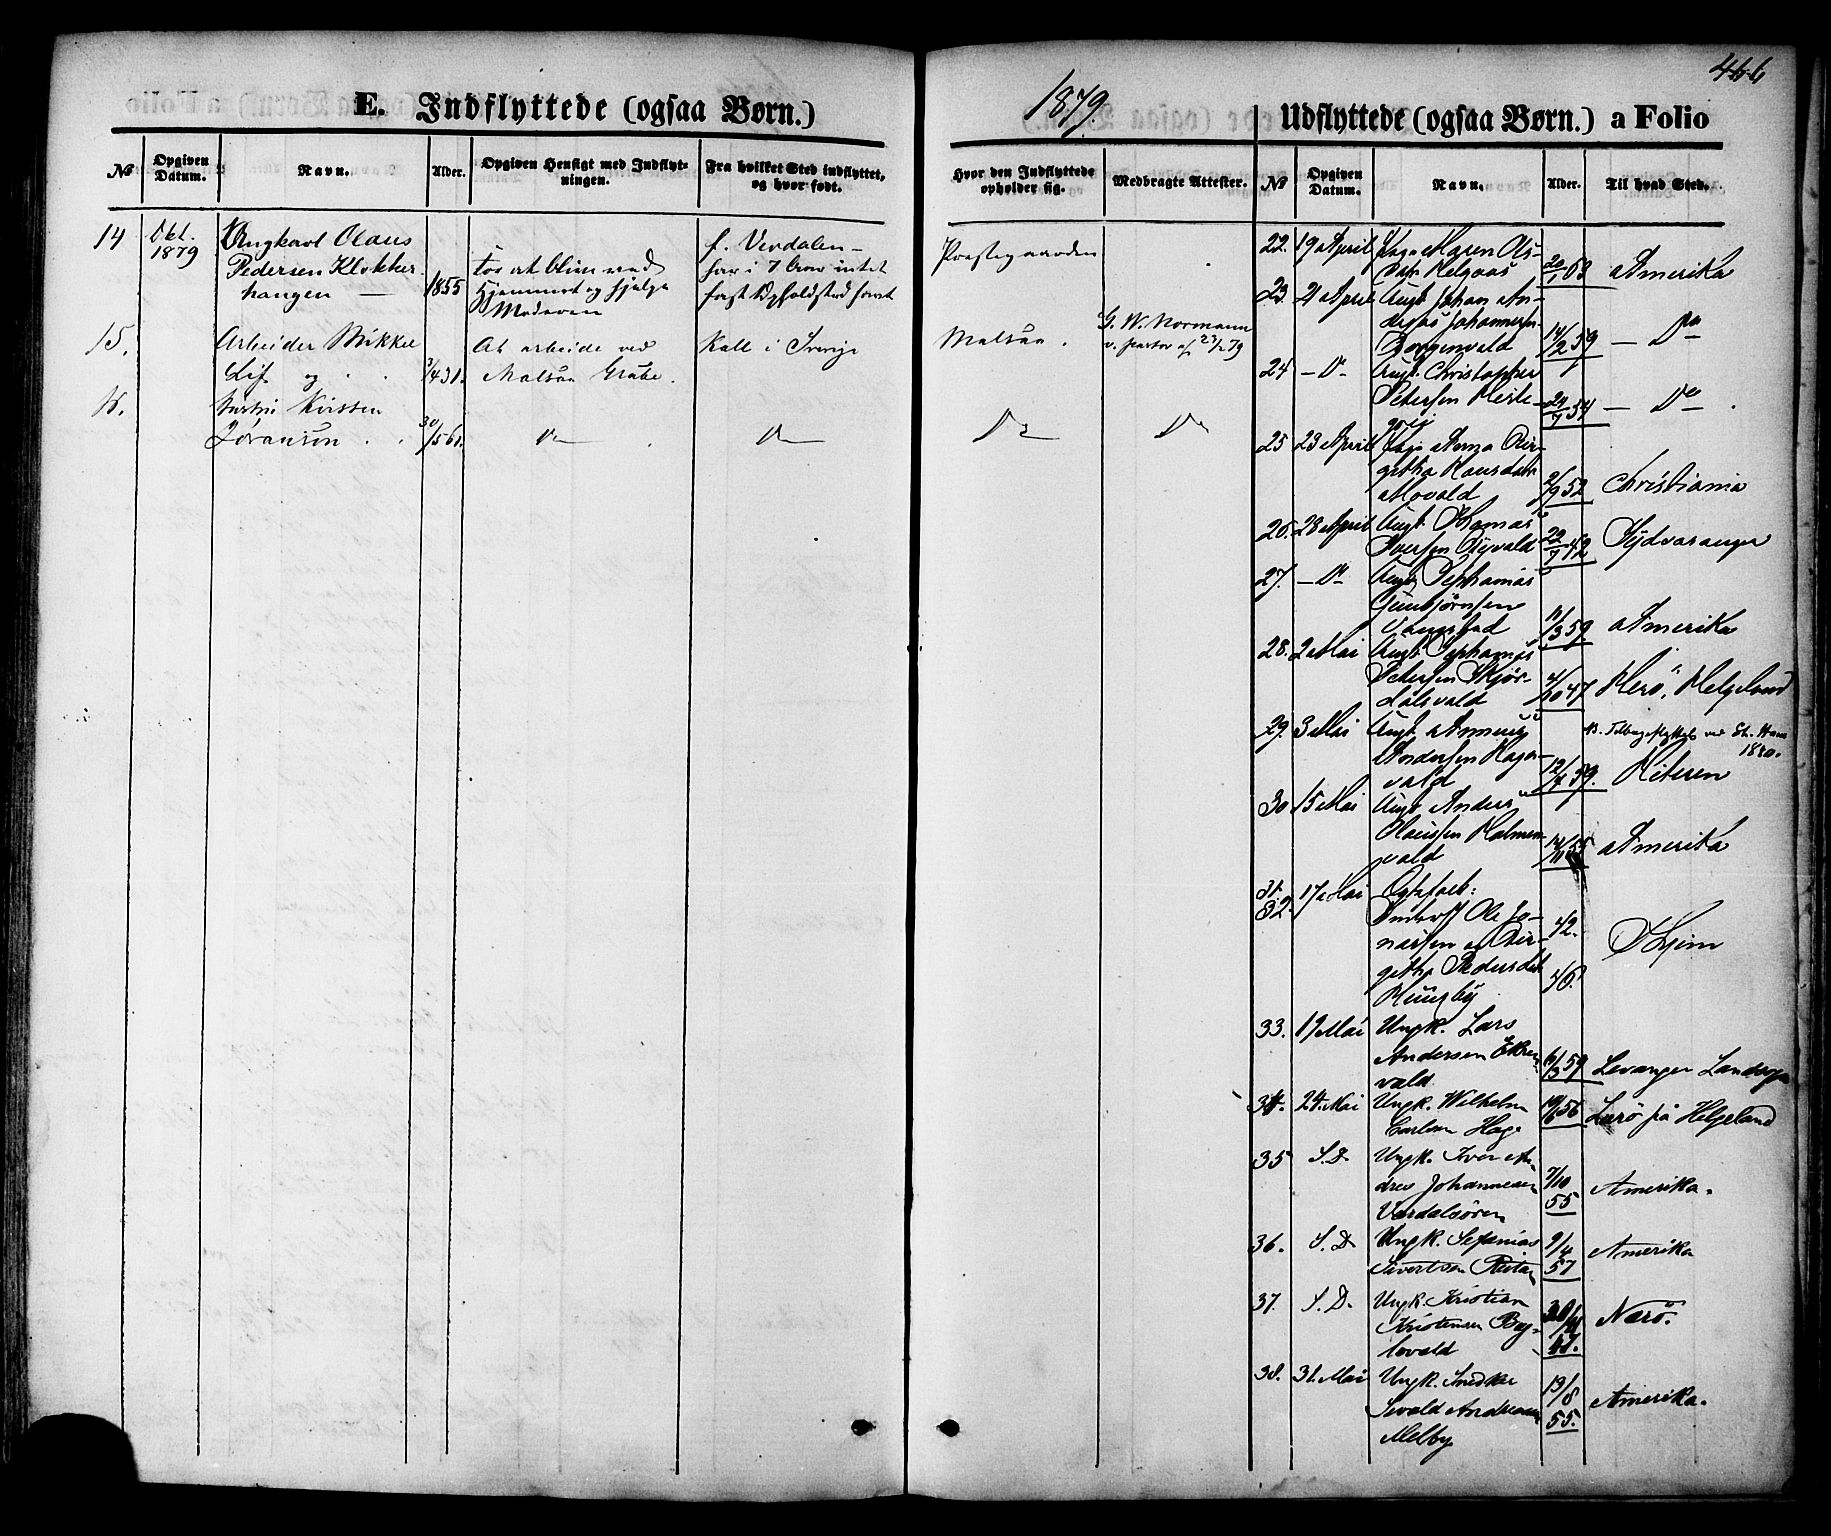 466
1879.
E. Indflyttede (ogsaa Børn.)
Udflyttede (ogsaa Børn.) a Folio
No
Opgiven Datum.
Navn.
Alder.
Opgiven Hensigt med Indflytningen.
Fra hvilket Sted indflyttet, og hvor født.
Hvor den Indflyttede opholder sig.
Medbragte Attester.
14 Okt. 1879 Ungkarl Olaus
Pedersen Klokker
haugen — 1855
hjemmet og hjælpe
Moderen
f. Verdalen —
har i 7 intet
fast Opholdsted havt
Præstegaarden
15. Arbeider Mikkel
og 3/4 31.
At arbeide ved
Malsaa Grube.
Kall i Sverige
Malsaa.
G. W. Normann
v. pastor 23/2 79
Göransson 30/5 61
Do
Do
Do
Do
No
Opgiven Datum.
Navn.
Alder.
Til hvad Sted.
22. 19 April Pige Maren Ols
Datr Helgaas 20/1 63 Amerika
23. 21 April Ungk. Johan An-
dreas Johannesen
14/2 59 — Do
24 — Do — Ungk. Christopher
Petersen
54 — Do.
25 23 April Pige Anna Bir-
githa Hansdatr
Movald 2/9 52 Christiania
26. 28 April Ungk. Thomas
Iversen 22/7 42 Sydvaranger
27. — Do Ungk. Sephanias
Gunbjørnsen
11/3 59 Amerika
28. 2 Mai Ungk. Sephanias
Petersen Skjør-
dalsvald 4/10 47 Herø, Helgeland
29. 3 Mai Ungk.
Andersen Hage-
vald 12/ 59. Hiteren
NB. Tilbageflyttet ved St. Hans
1880.
30 15 Mai Ungk. Anders
Olaussen Halmen-
vald 14/11 55 Amerika
31. 32. 17 Mai
Inderst Ole Jo-
nassen og Bir-
githa Pedersdatr
42.
46.
Thjem
33. 19 Mai Ungk. Lars
Andersen Ekren
vald 6/3 59 Levanger Landsogn
34. 24. Mai Ungk. Wilhelm
Carlsen Hage 19/6 56 på Helgeland
35 S. D. Ungk. Iver An-
dreas Johannesen
Verdalsören 7/10 55 Amerika.
36. S. D. Ungk. Sefanias
Sivertsen 9/4 57 Amerika
37. S. D. Ungk. Kristian
Kristensen By-
lavald 47. Nærö.
38. 31. Mai Ungk. Snedker
Sevald Andreasen
Melby 13/8 55. Amerika.